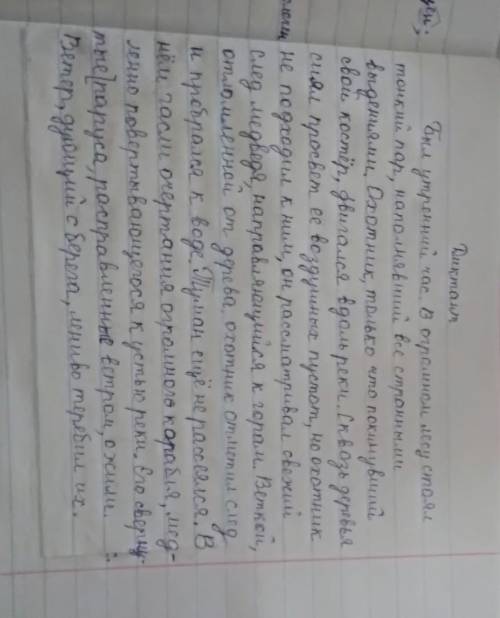 Диктант
Был утренний час. В огромном лесу стоял
тонкий пар, наполнявший все странными
видениями. Охотник, только что покинувший
свой костёр, двигался вдоль реки. Сквозь деревья
сиял просвет ее воздушных пустот, но охотник
не подходил к ним, он рассматривал свежий
след медведя, направляющийся к горам. Веткой,
отломленной от дерева, охотник отметил след
и пробрался к воде. Туман ещё не рассеялся. В
нём гасли очертания огромного корабля, мед-
ленно повертывающегося к устью реки. Его сверну-
тые паруса, расправленные ветром, ожили.
Ветер, дующий с берега, лениво теребил их.